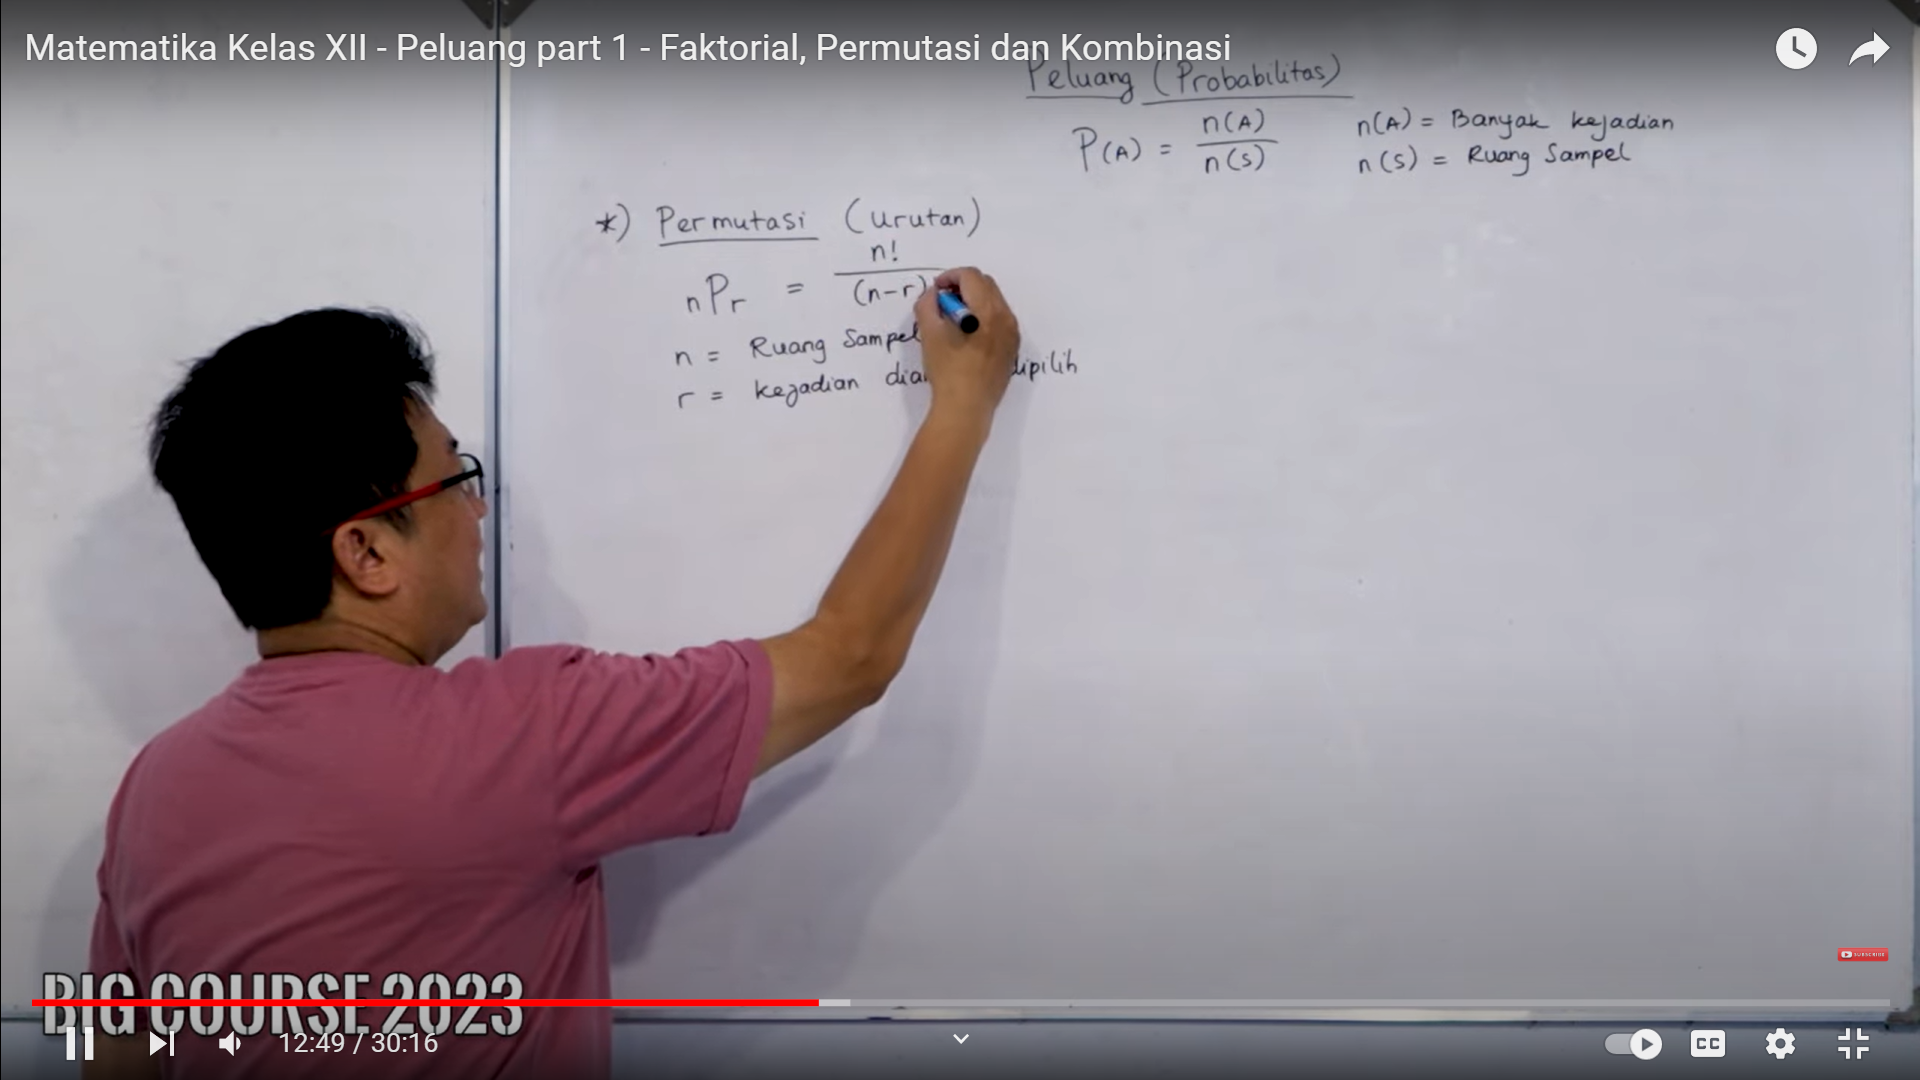 Matematika Kelas XII - Peluang part 1 - Faktorial, Permutasi dan Kombinasi
Peluang (Probabilitas)
P(A) = n(A) / n(S)
n(A) = Banyak kejadian
n(S) = Ruang Sampel
*) Permutasi (urutan)
nPr = n! / (n-r)
n = Ruang Sampel
r = kejadian dipilih
BIG COURSE 2023
SUBSCRIBE
12:49 / 30:16
CC